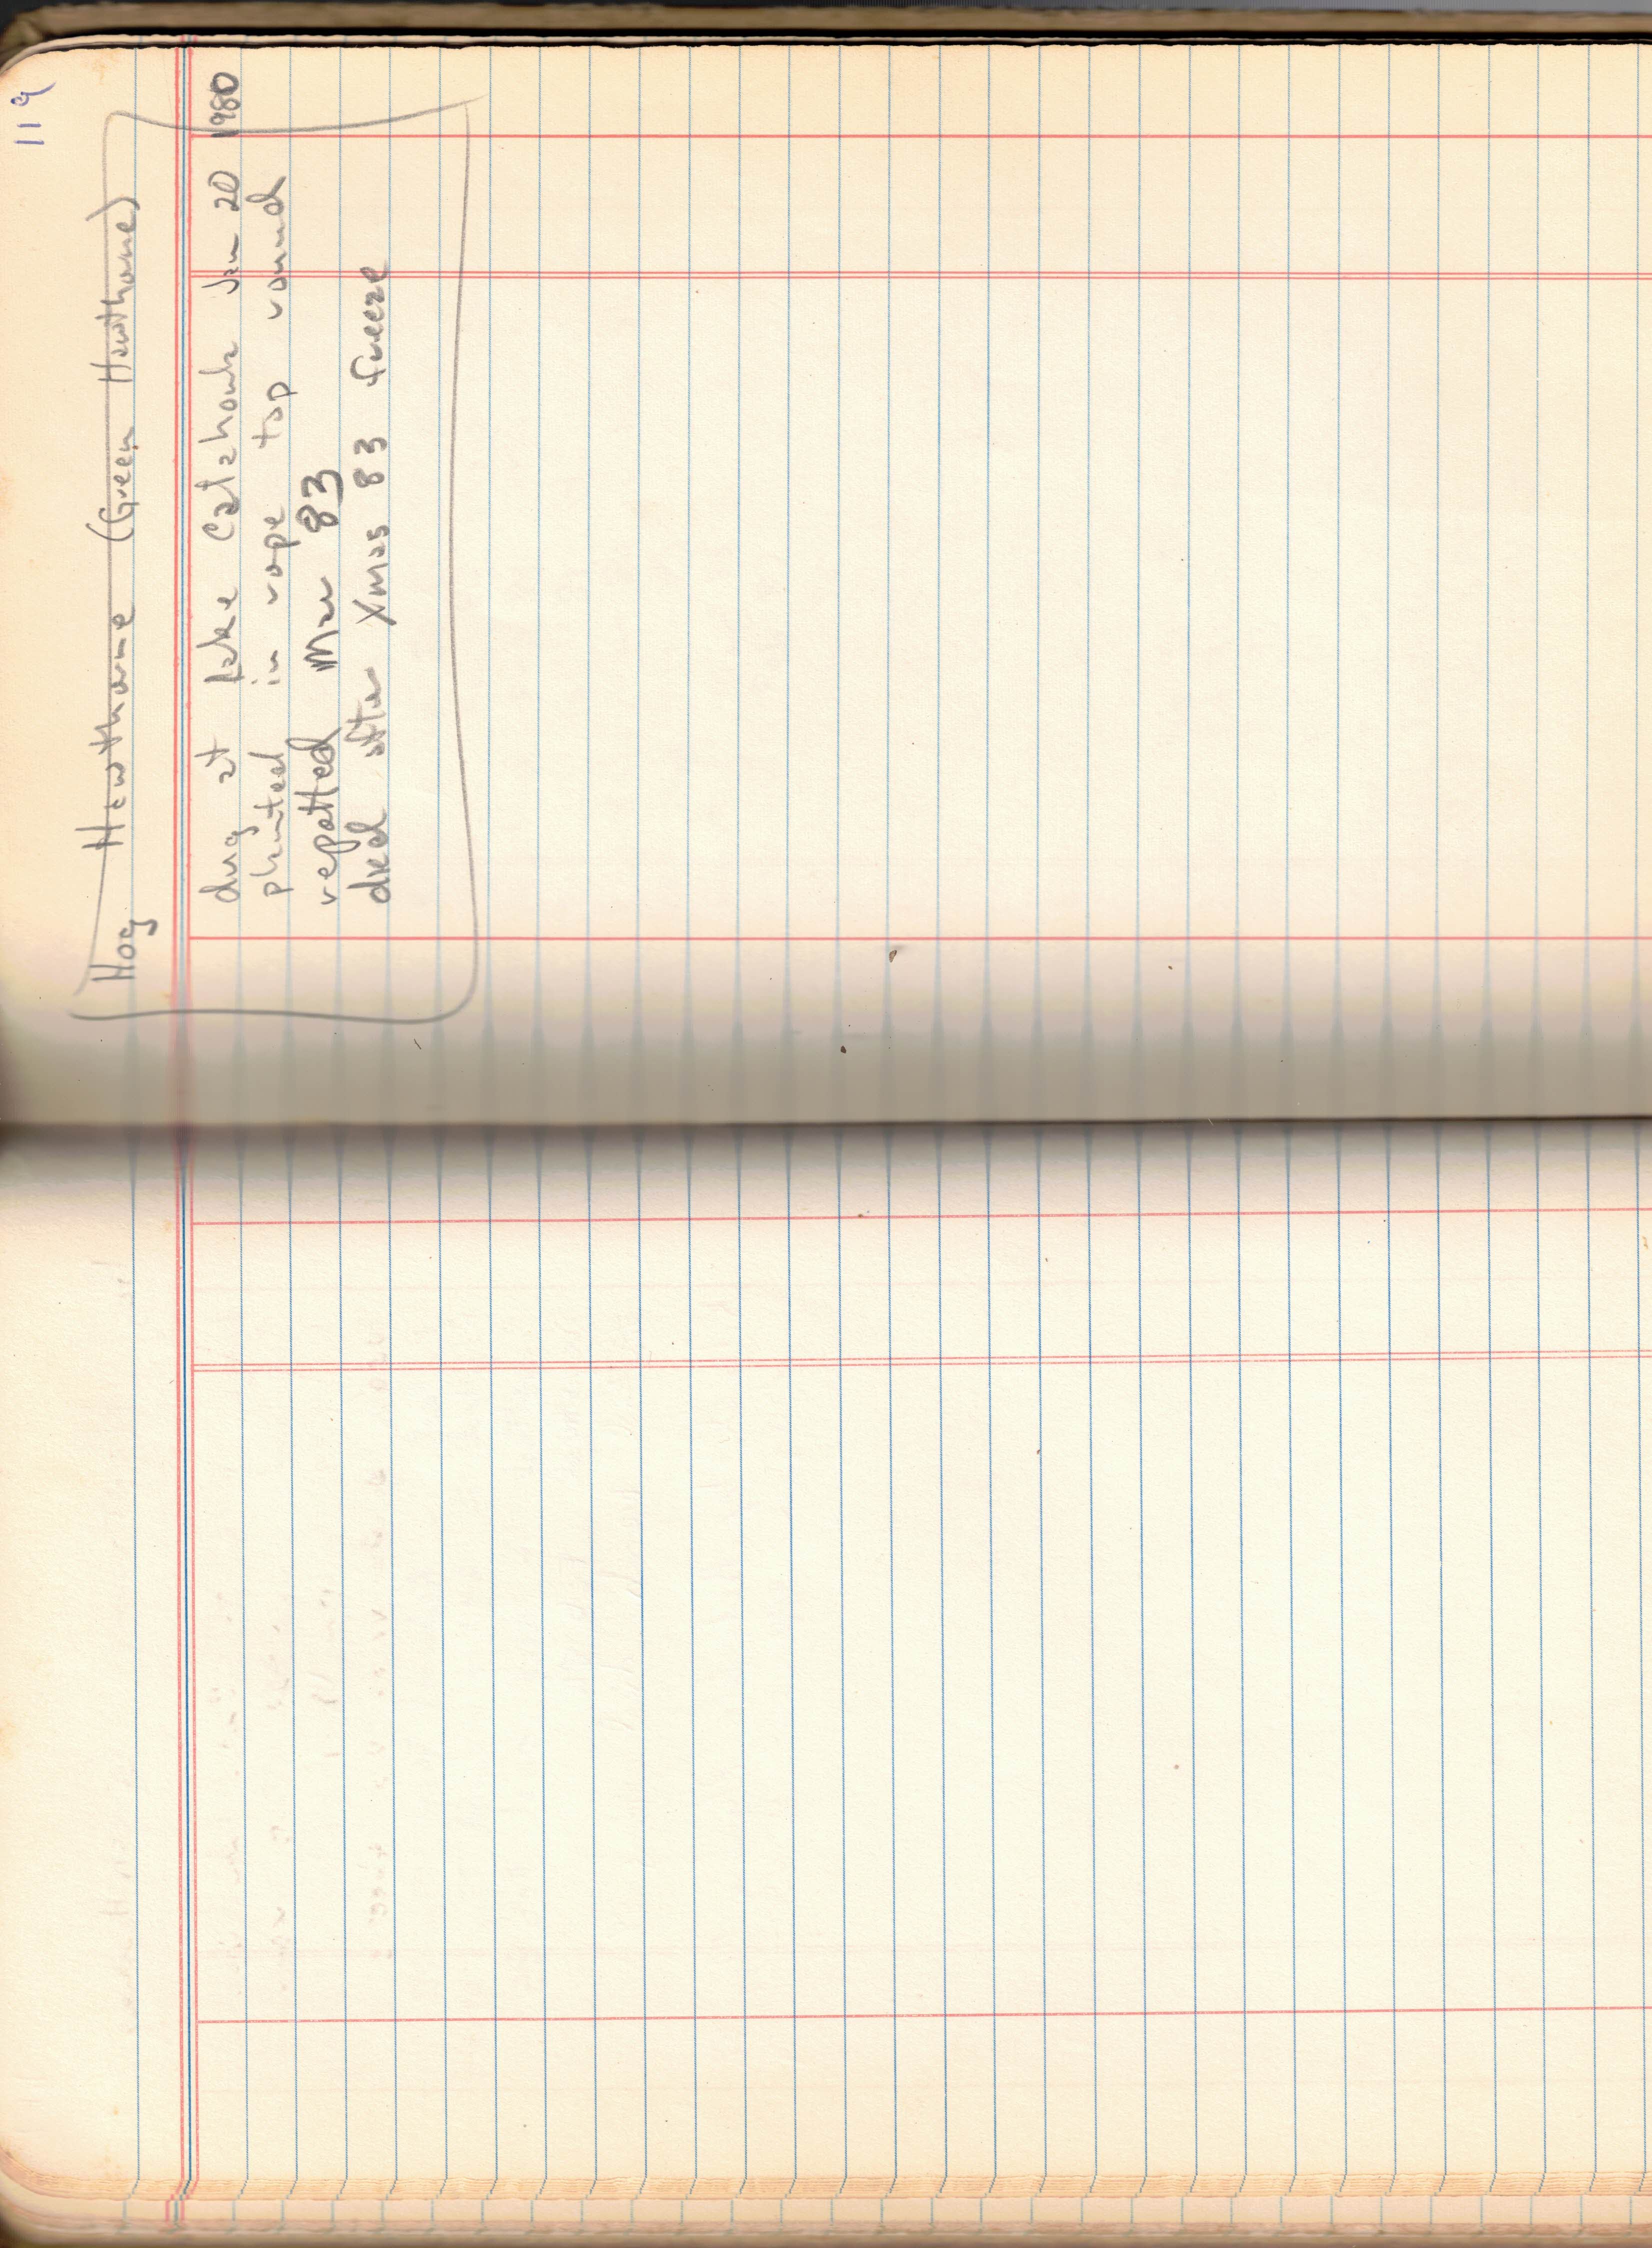 119
Hog Hawthorne (Green Hawthorne)
dug at Lake Catahoula Jan 20 1980
planted in rope top round
repotted Mar 83
died after Xmas 83 freeze